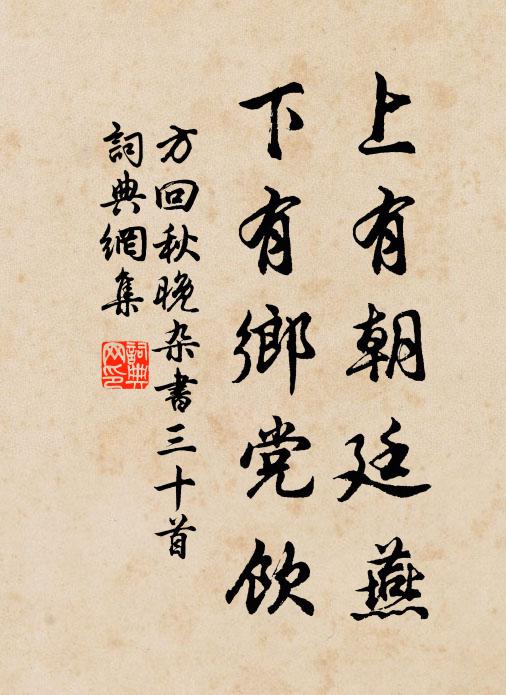 上有朝廷燕
下有鄉党飲
方回秋晚杂書三十首
詞典網集
詞典網印